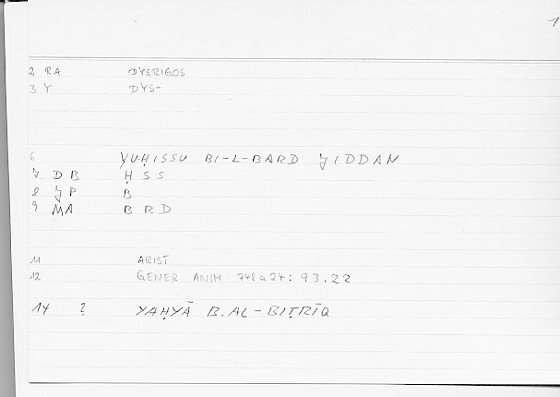 1
2 RA DYSRIGOS
3 Y DYS-
6 YUḤISSU BI-L-BARD ǦIDDAN
7 DB ḤSS
8 ǦP B
9 MA BRD
11 ARIST
12 GENER ANIM 748a24: 93.22
14 ? YAḤYĀ B. AL-BIṬRĪQ